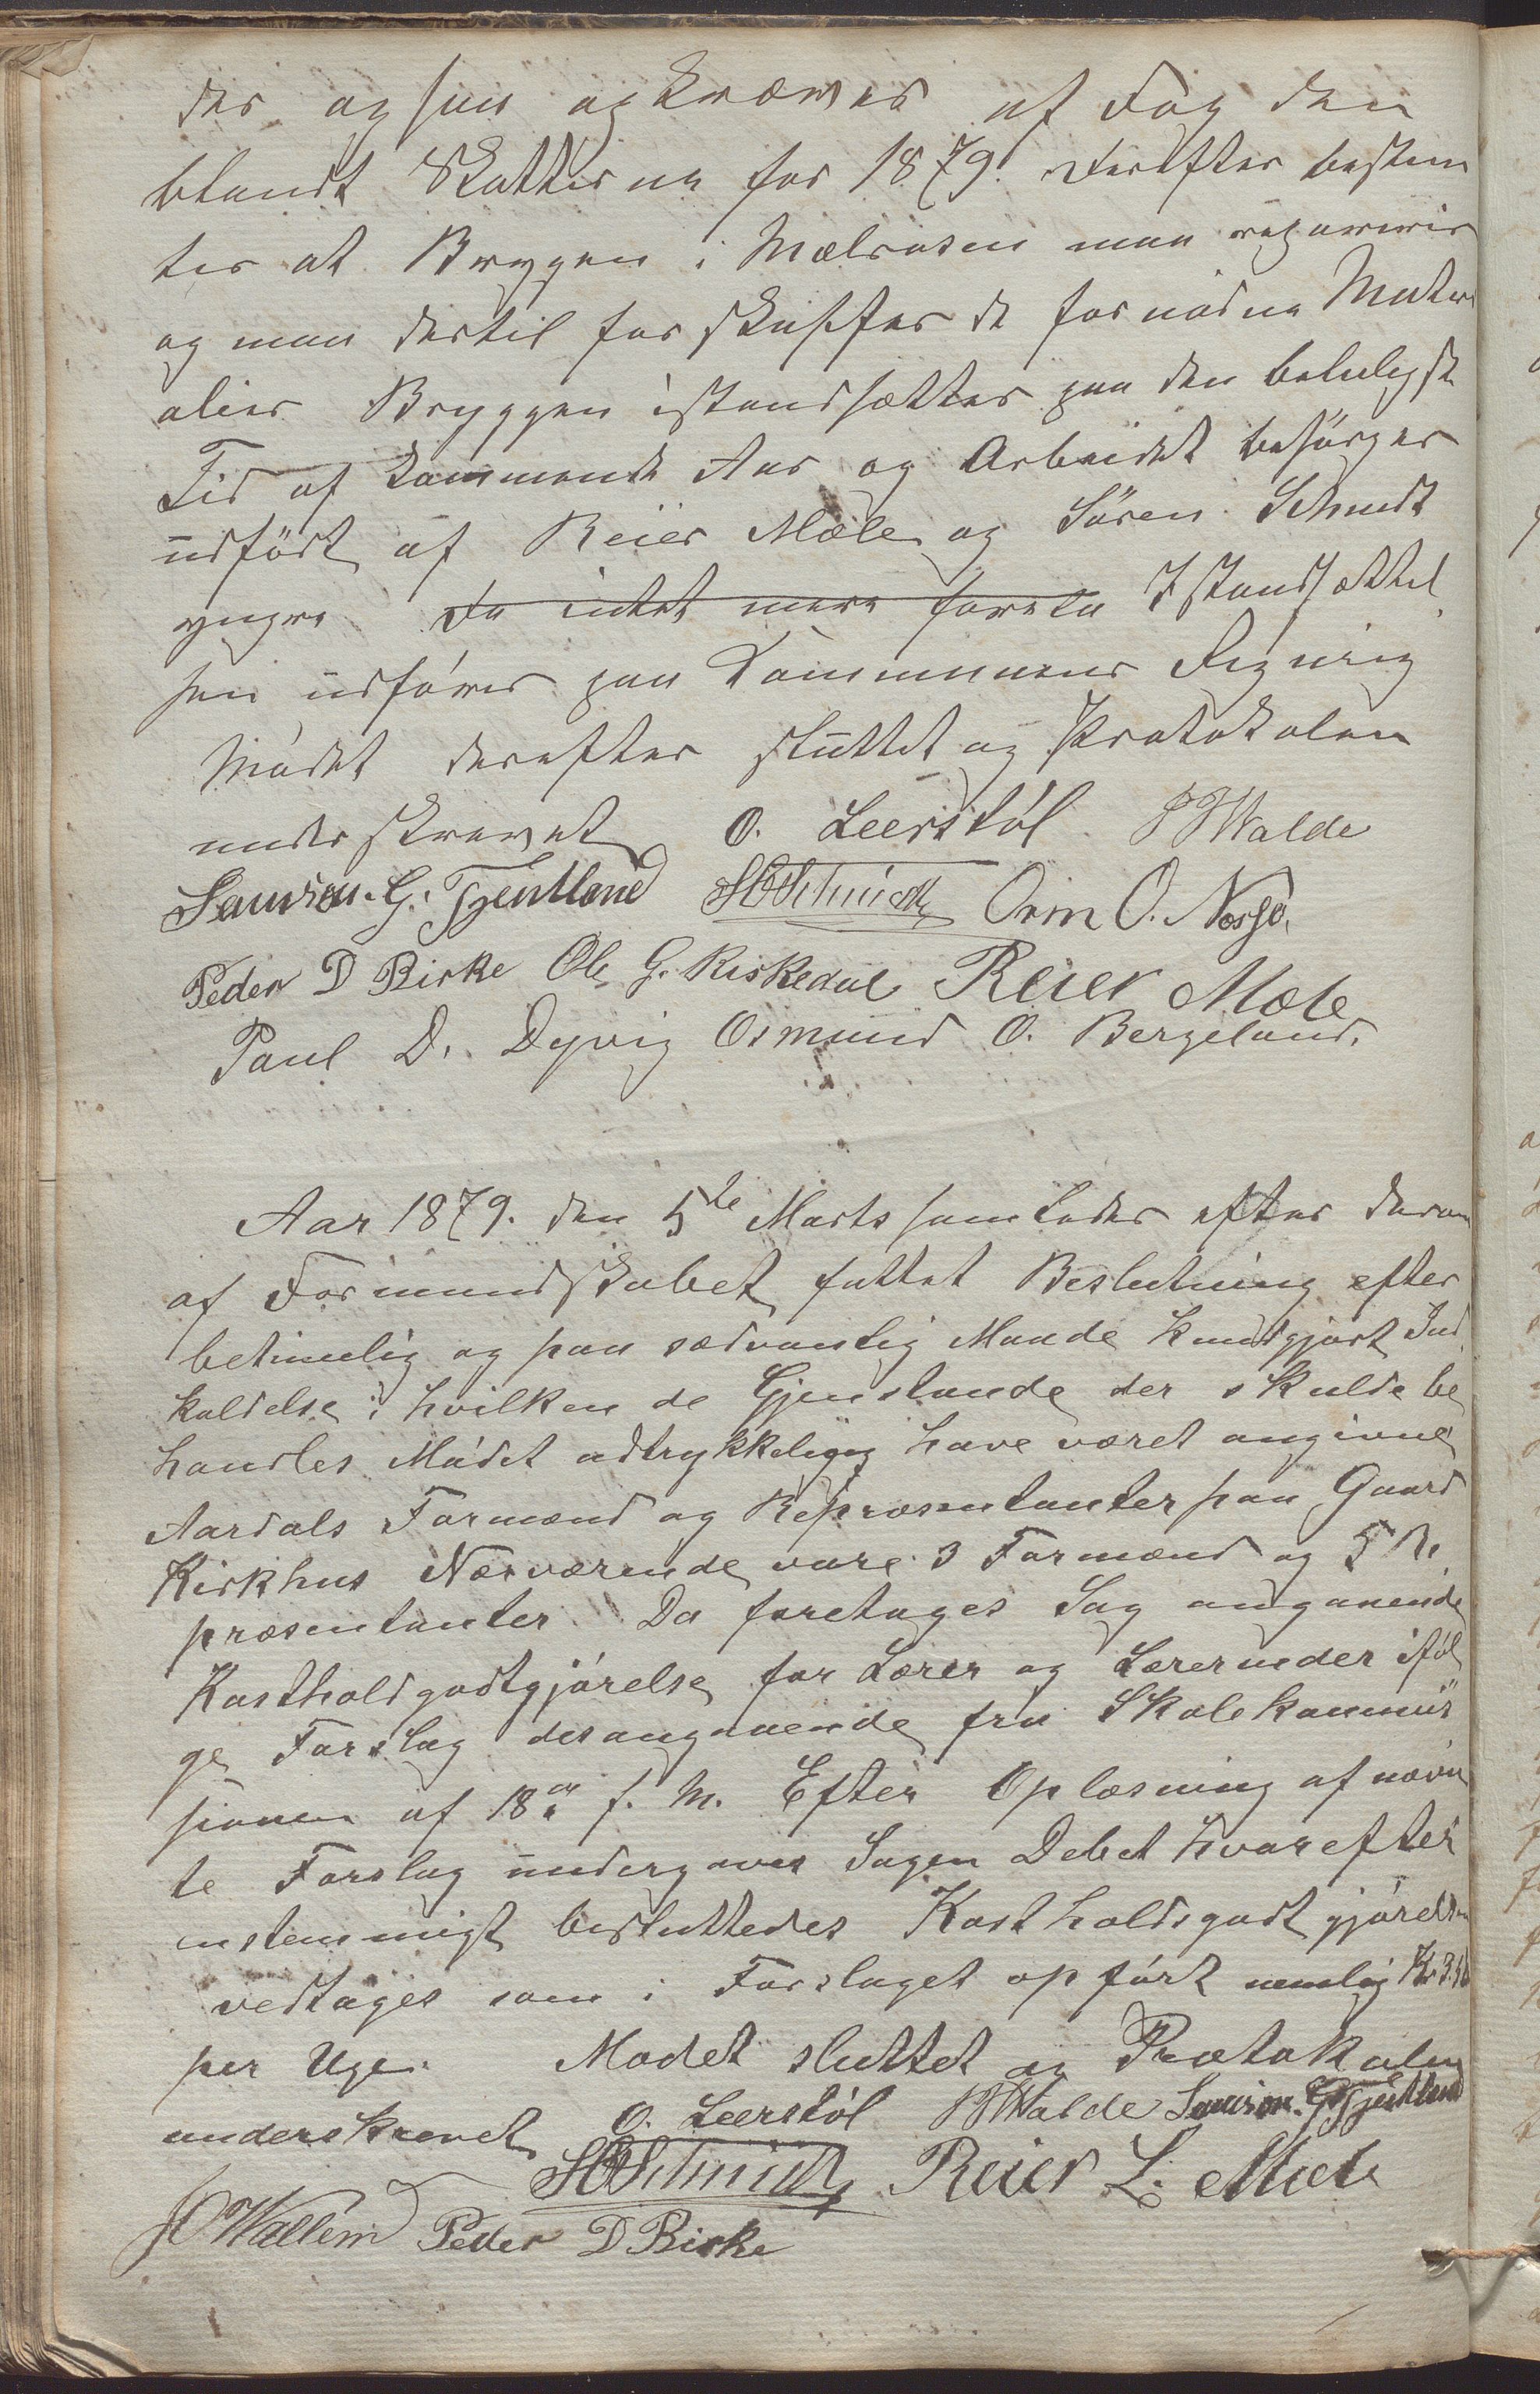 des og som opkræves af Fog den
blandt Skatterne for 1879. Derefter bestem
tes at Brygen i Mælsosen maa repareres
og man dertil forskaffes de fornødne Materi
alier Bryggen istandsættes paa den beleligste
Tid af kommende Aar og Arbeidet besørges
udført af Reier Mæle og Sören Schmidt
yngre Da intet mere foreta Istandsættel
sen udføres paa Kommunens Regning
Mødet derefter sluttet og Protokolen
underskrevet O. Leerstöl P Walde
Samson. G. Tjentland SBSchmidt Orm O. Nessø.
Peder D Birke Ole G. Riskedal Reier Mæle
Paul D. Dyvig Osmund O. Bergeland.
Aar 1879. den 5te Marts samledes efter derom
af Formandskabet fattet Beslutning efter
betimelig og paa sædvanlig Maade kundgjort Ind
kaldelse i hvilken de Gjenstande der skulde be
handles Mødet udtrykkeligg have været angivne
Aardals Formænd og Repræsentanter paa Gaard
Kirkhus Nærværende vare 3 Formænd og 5 Re
præsentanter. Da foretages Sag angaaende
Kostholdgodtgjørelse for Lærer og Lærerinder iføl
ge Forslag desangaaende fra Skolekommis
sionen af 18de f. M. Efter Oplæsning af nævn
te Forslag undergaves Sagen Debat hvorefter
enstemmigt besluttedes Kostholdsgodtgjørelsen
vedtages som i Forslaget opført nemlig Kr 3.50
per Uge. Mødet sluttet og Protokolen
underskrevet O. Leerstöl P Walde Samson. G Tjentland
SBSchmidt Reier L. Mæle
JO Wallem Peder D Birke